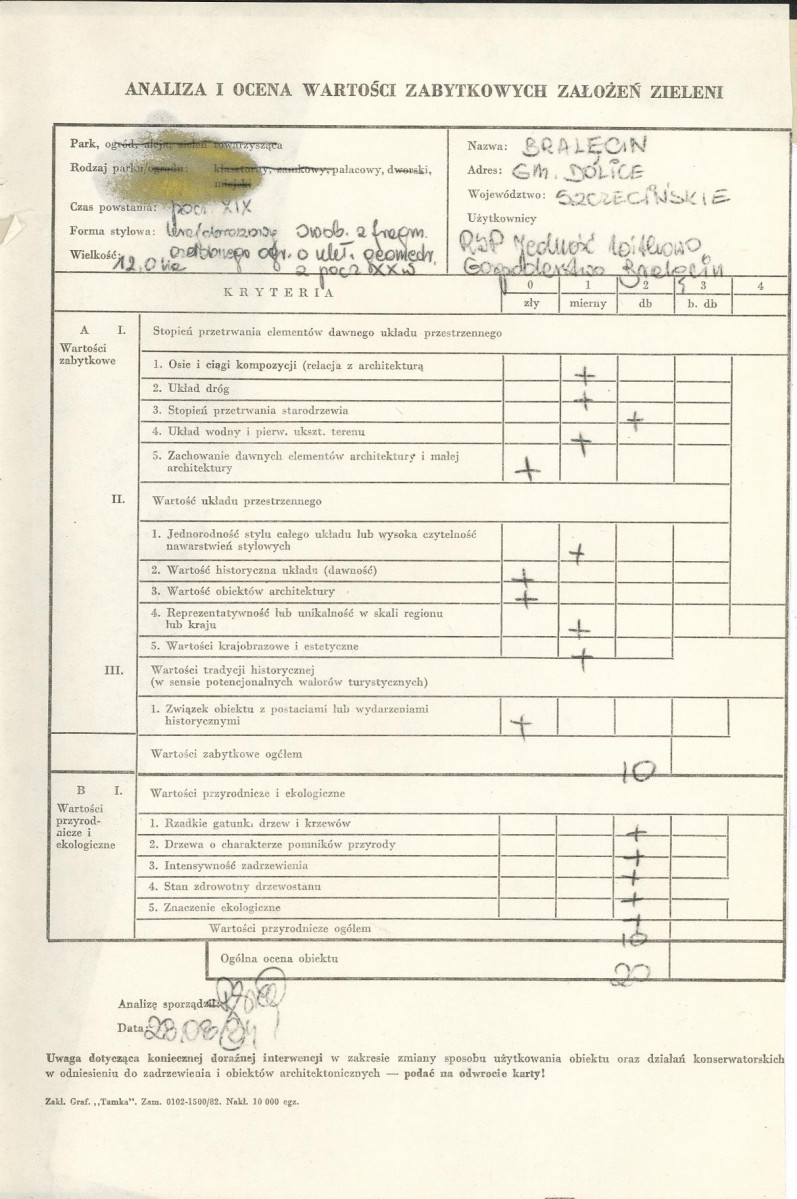 ANALIZA I OCENA WARTOŚCI ZABYTKOWYCH ZAŁOŻEŃ ZIELENI
Park, ogród, aleja, zieleń towarzysząca
Rodzaj parku/ogrodu: klasztorny, zamkowy, pałacowy, dworski,
miejski
Czas powstania: pocz. XIX
Forma stylowa: swob. z fragm.
ozdobnego ogr. o ukł. geometr.
Wielkość: 12,0 ha z pocz XX w
Nazwa: BRALĘCIN
Adres: GM. DOLICE
Województwo: SZCZECIŃSKIE
Użytkownicy
RSP Jedność Witkowo
Gospodarstwo Bralęcin
KRYTERIA
0 1 2 3 4
zły mierny db b. db
A I. Stopień przetrwania elementów dawnego układu przestrzennego
Wartości
zabytkowe
1. Osie i ciągi kompozycji (relacja z architekturą +
2. Układ dróg +
3. Stopień przetrwania starodrzewia +
4. Układ wodny i pierw. ukszt. terenu +
5. Zachowanie dawnych elementów architektury i małej
architektury +
II. Wartość układu przestrzennego
1. Jednorodność stylu całego układu lub wysoka czytelność
nawarstwień stylowych +
2. Wartość historyczna układu (dawność) +
3. Wartość obiektów architektury +
4. Reprezentatywność lub unikalność w skali regionu
lub kraju +
5. Wartości krajobrazowe i estetyczne +
III. Wartości tradycji historycznej
(w sensie potencjonalnych walorów turystycznych)
1. Związek obiektu z postaciami lub wydarzeniami
historycznymi +
Wartości zabytkowe ogółem 10
B I. Wartości przyrodnicze i ekologiczne
Wartości
przyrod-
nicze i
ekologiczne
1. Rzadkie gatunki drzew i krzewów +
2. Drzewa o charakterze pomników przyrody +
3. Intensywność zadrzewienia +
4. Stan zdrowotny drzewostanu +
5. Znaczenie ekologiczne +
Wartości przyrodnicze ogółem 10
Ogólna ocena obiektu 20
Analizę sporządził:
Data:
Uwaga dotycząca koniecznej doraźnej interwencji w zakresie zmiany sposobu użytkowania obiektu oraz działań konserwatorskich
w odniesieniu do zadrzewienia i obiektów architektonicznych — podać na odwrocie karty!
Zakł. Graf. „Tamka". Zam. 0102-1500/82. Nakł. 10 000 egz.